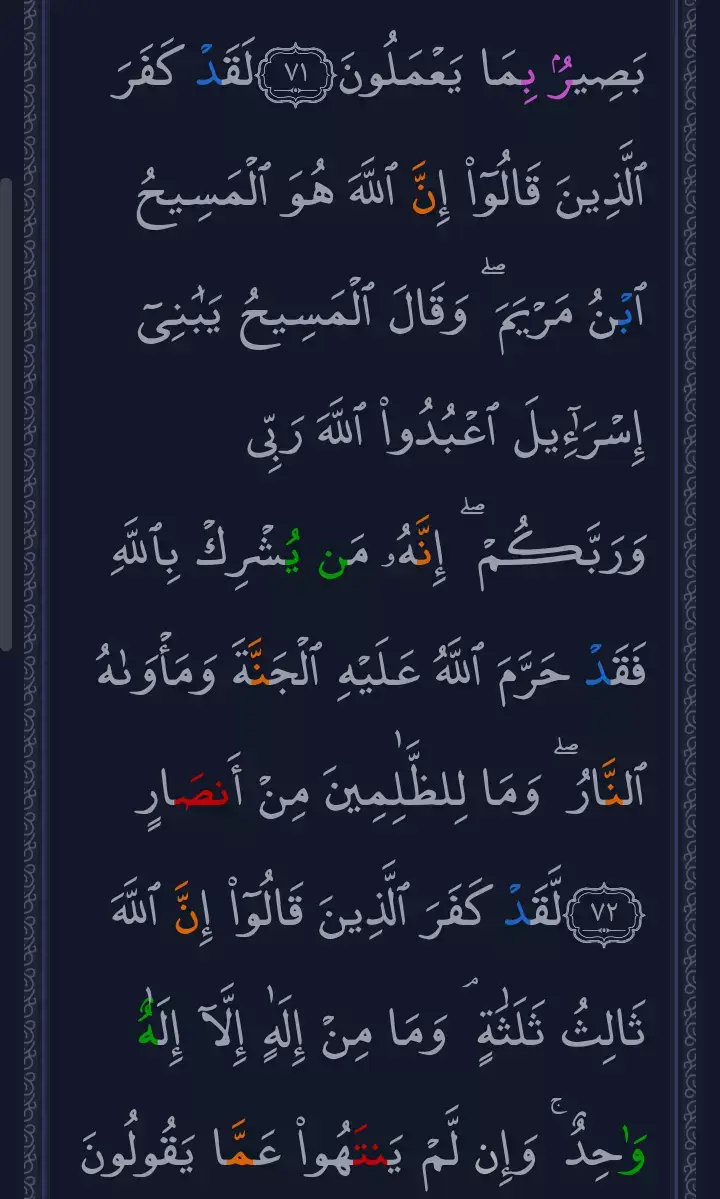 بَصِيرُۢ بِمَا يَعْمَلُونَ ٧١ لَقَدْ كَفَرَ
ٱلَّذِينَ قَالُوٓا۟ إِنَّ ٱللَّهَ هُوَ ٱلْمَسِيحُ
ٱبْنُ مَرْيَمَ ۖ وَقَالَ ٱلْمَسِيحُ يَـٰبَنِىٓ
إِسْرَٰٓءِيلَ ٱعْبُدُوا۟ ٱللَّهَ رَبِّى
وَرَبَّكُمْ ۖ إِنَّهُۥ مَن يُشْرِكْ بِٱللَّهِ
فَقَدْ حَرَّمَ ٱللَّهُ عَلَيْهِ ٱلْجَنَّةَ وَمَأْوَىٰهُ
ٱلنَّارُ ۖ وَمَا لِلظَّـٰلِمِينَ مِنْ أَنصَارٍ
٧٢ لَّقَدْ كَفَرَ ٱلَّذِينَ قَالُوٓا۟ إِنَّ ٱللَّهَ
ثَالِثُ ثَلَـٰثَةٍ ۘ وَمَا مِنْ إِلَـٰهٍ إِلَّآ إِلَـٰهٌ
وَٰحِدٌ ۚ وَإِن لَّمْ يَنتَهُوا۟ عَمَّا يَقُولُونَ